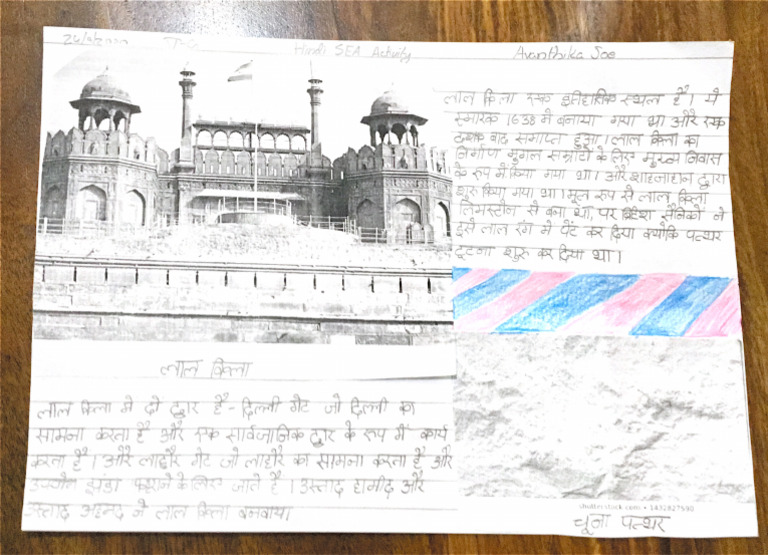 Hindi SEA Activity
Avanthika Joe
लाल किला एक इतिहासिक स्थल है। ये
स्मारक 1638 में बनाया गया था और एक
दशक बाद समाप्त हुआ। लाल किला का
निर्माण मुगल सम्राटों के लिए मुख्य निवास
के रूप में किया गया था। और शाहजाहान द्वारा
शुरू किया गया था। मूल रूप से लाल किला
लिमस्टोन से बना था, पर ब्रिटिश सैनिकों ने
इसे लाल रंग में पेंट कर दिया क्योंकि पत्थर
टूटना शुरू कर दिया था।
लाल किला
लाल किला में दो द्वार है - दिल्ली गेट जो दिल्ली का
सामना करता है और एक सार्वजानिक द्वार के रूप में कार्य
करता है। और लाहौर गेट जो लाहौर का सामना करता है और
झंडा फहराने के लिए जाते है। उस्ताद हामीद और
उस्ताद अहमद ने लाल किला बनवाया।
shutterstock.com • 1432827590
चूना पत्थर